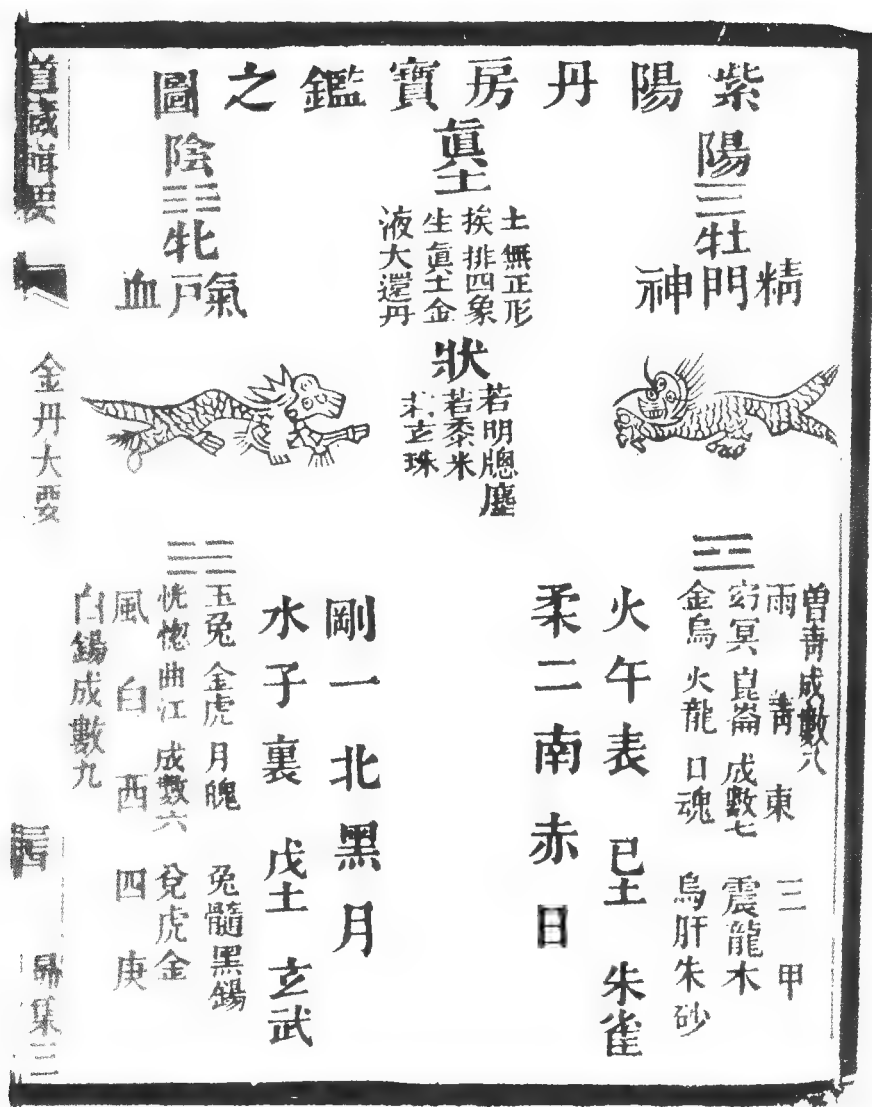 紫陽丹房寶鑑之圖
陽☰牡
精門神
眞土
土無正形
挨排四象
生眞土金
液大還丹
狀
若明牕塵
若黍米
玄珠
陰☷牝
氣戶血
曾青成數八
雨青東三甲
窈冥崑崙成數七震龍木
金烏火龍日魂烏肝朱砂
火午表己土朱雀
柔二南赤日
剛一北黑月
水子裏戊土玄武
玉兔金虎月魄兔髓黑錫
恍惚曲江成數六兌虎金
風白西四庚
白錫成數九
道藏輯要
金丹大要
昴集三